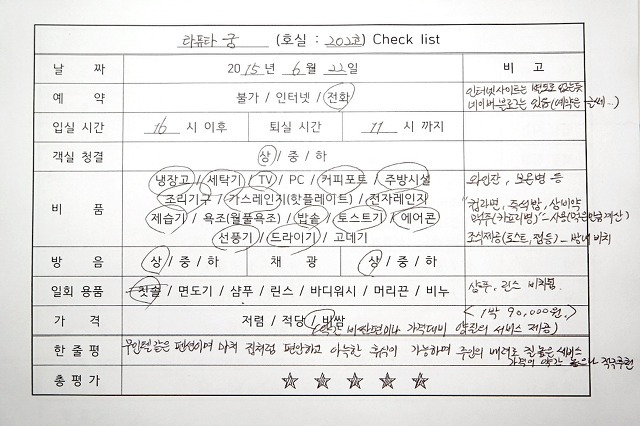 라퓨타 궁 (호실 : 202호) Check list
날 짜 2015년 6월 22일 비 고
예 약 불가 / 인터넷 / 전화 인터넷사이트는 별도로 없는듯
네이버 블로그는 있음 (예약은 글쎄...)
입실 시간 16 시 이후 퇴실 시간 11 시 까지
객실 청결 상 / 중 / 하
냉장고 / 세탁기 / TV / PC / 커피포트 / 주방시설 와인잔, 보온병 등
조리기구 / 가스레인지(핫플레이트) / 전자레인지 "컵라면, 즉석밥, 상비약
비 품 제습기 / 욕조(월풀욕조) / 밥솥 / 토스트기 / 에어콘 맥주(카프리병)" - 사용(먹은만큼 계산)
선풍기 / 드라이기 / 고데기 조식제공(토스트, 잼등) - 방내 비치
방 음 상 / 중 / 하 채 광 상 / 중 / 하
일회 용품 칫솔 / 면도기 / 샴푸 / 린스 / 바디워시 / 머리끈 / 비누 샴푸, 린스 비치됨
가 격 저렴 / 적당 / 비쌈 < 1박 90,000원.
(약간 비싼편이나 가격대비 양질의 서비스 제공)
한 줄 평 무인텔같은 펜션이며 마치 집처럼 편안하고 아늑한 휴식이 가능하며 주인의 배려로 질 높은 서비스
가격이 약간 높으나 적극추천
총 평 가 ☆ ☆ ☆ ☆ ☆